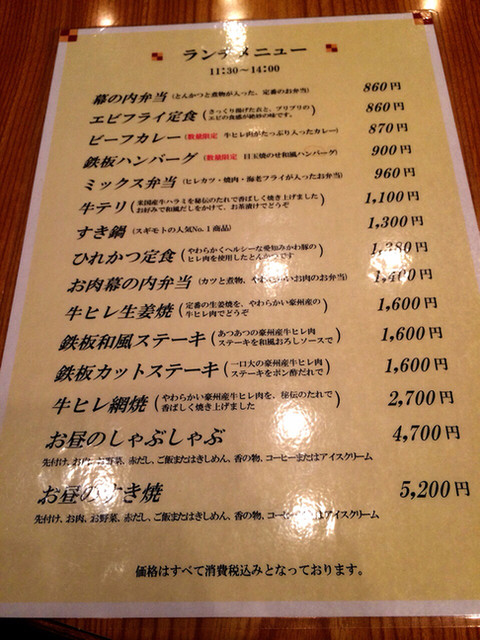 ランチメニュー
11:30～14:00
幕の内弁当 (とんかつと煮物が入った、定番のお弁当) 860円
エビフライ定食 (さっくり揚げた衣と、プリプリのエビの食感が絶妙の味です。) 860円
ビーフカレー (数量限定 牛ヒレ肉がたっぷり入ったカレー) 870円
鉄板ハンバーグ (数量限定 目玉焼のせ和風ハンバーグ) 900円
ミックス弁当 (ヒレカツ・焼肉・海老フライが入ったお弁当) 960円
牛テリ (米国産牛ハラミを秘伝のたれで香ばしく焼き上げました お好みで和風だしをかけて、お茶漬けでどうぞ) 1,100円
すき鍋 (スギモトの人気No.1商品) 1,300円
ひれかつ定食 (やわらかくヘルシーな愛知みかわ豚のヒレ肉を使用したとんかつです) 1,380円
お肉幕の内弁当 (カツと煮物、やわらかいお肉のお弁当) 1,400円
牛ヒレ生姜焼 (定番の生姜焼を、やわらかい豪州産の牛ヒレ肉でどうぞ) 1,600円
鉄板和風ステーキ (あつあつの豪州産牛ヒレ肉ステーキを和風おろしソースで) 1,600円
鉄板カットステーキ (一口大の豪州産牛ヒレ肉ステーキをポン酢だれで) 1,600円
牛ヒレ網焼 (やわらかい豪州産牛ヒレ肉を、秘伝のたれで香ばしく焼き上げました) 2,700円
お昼のしゃぶしゃぶ 4,700円
先付け、お肉、お野菜、赤だし、ご飯またはきしめん、香の物、コーヒーまたはアイスクリーム
お昼のすき焼 5,200円
先付け、お肉、お野菜、赤だし、ご飯またはきしめん、香の物、コーヒーまたはアイスクリーム
価格はすべて消費税込みとなっております。